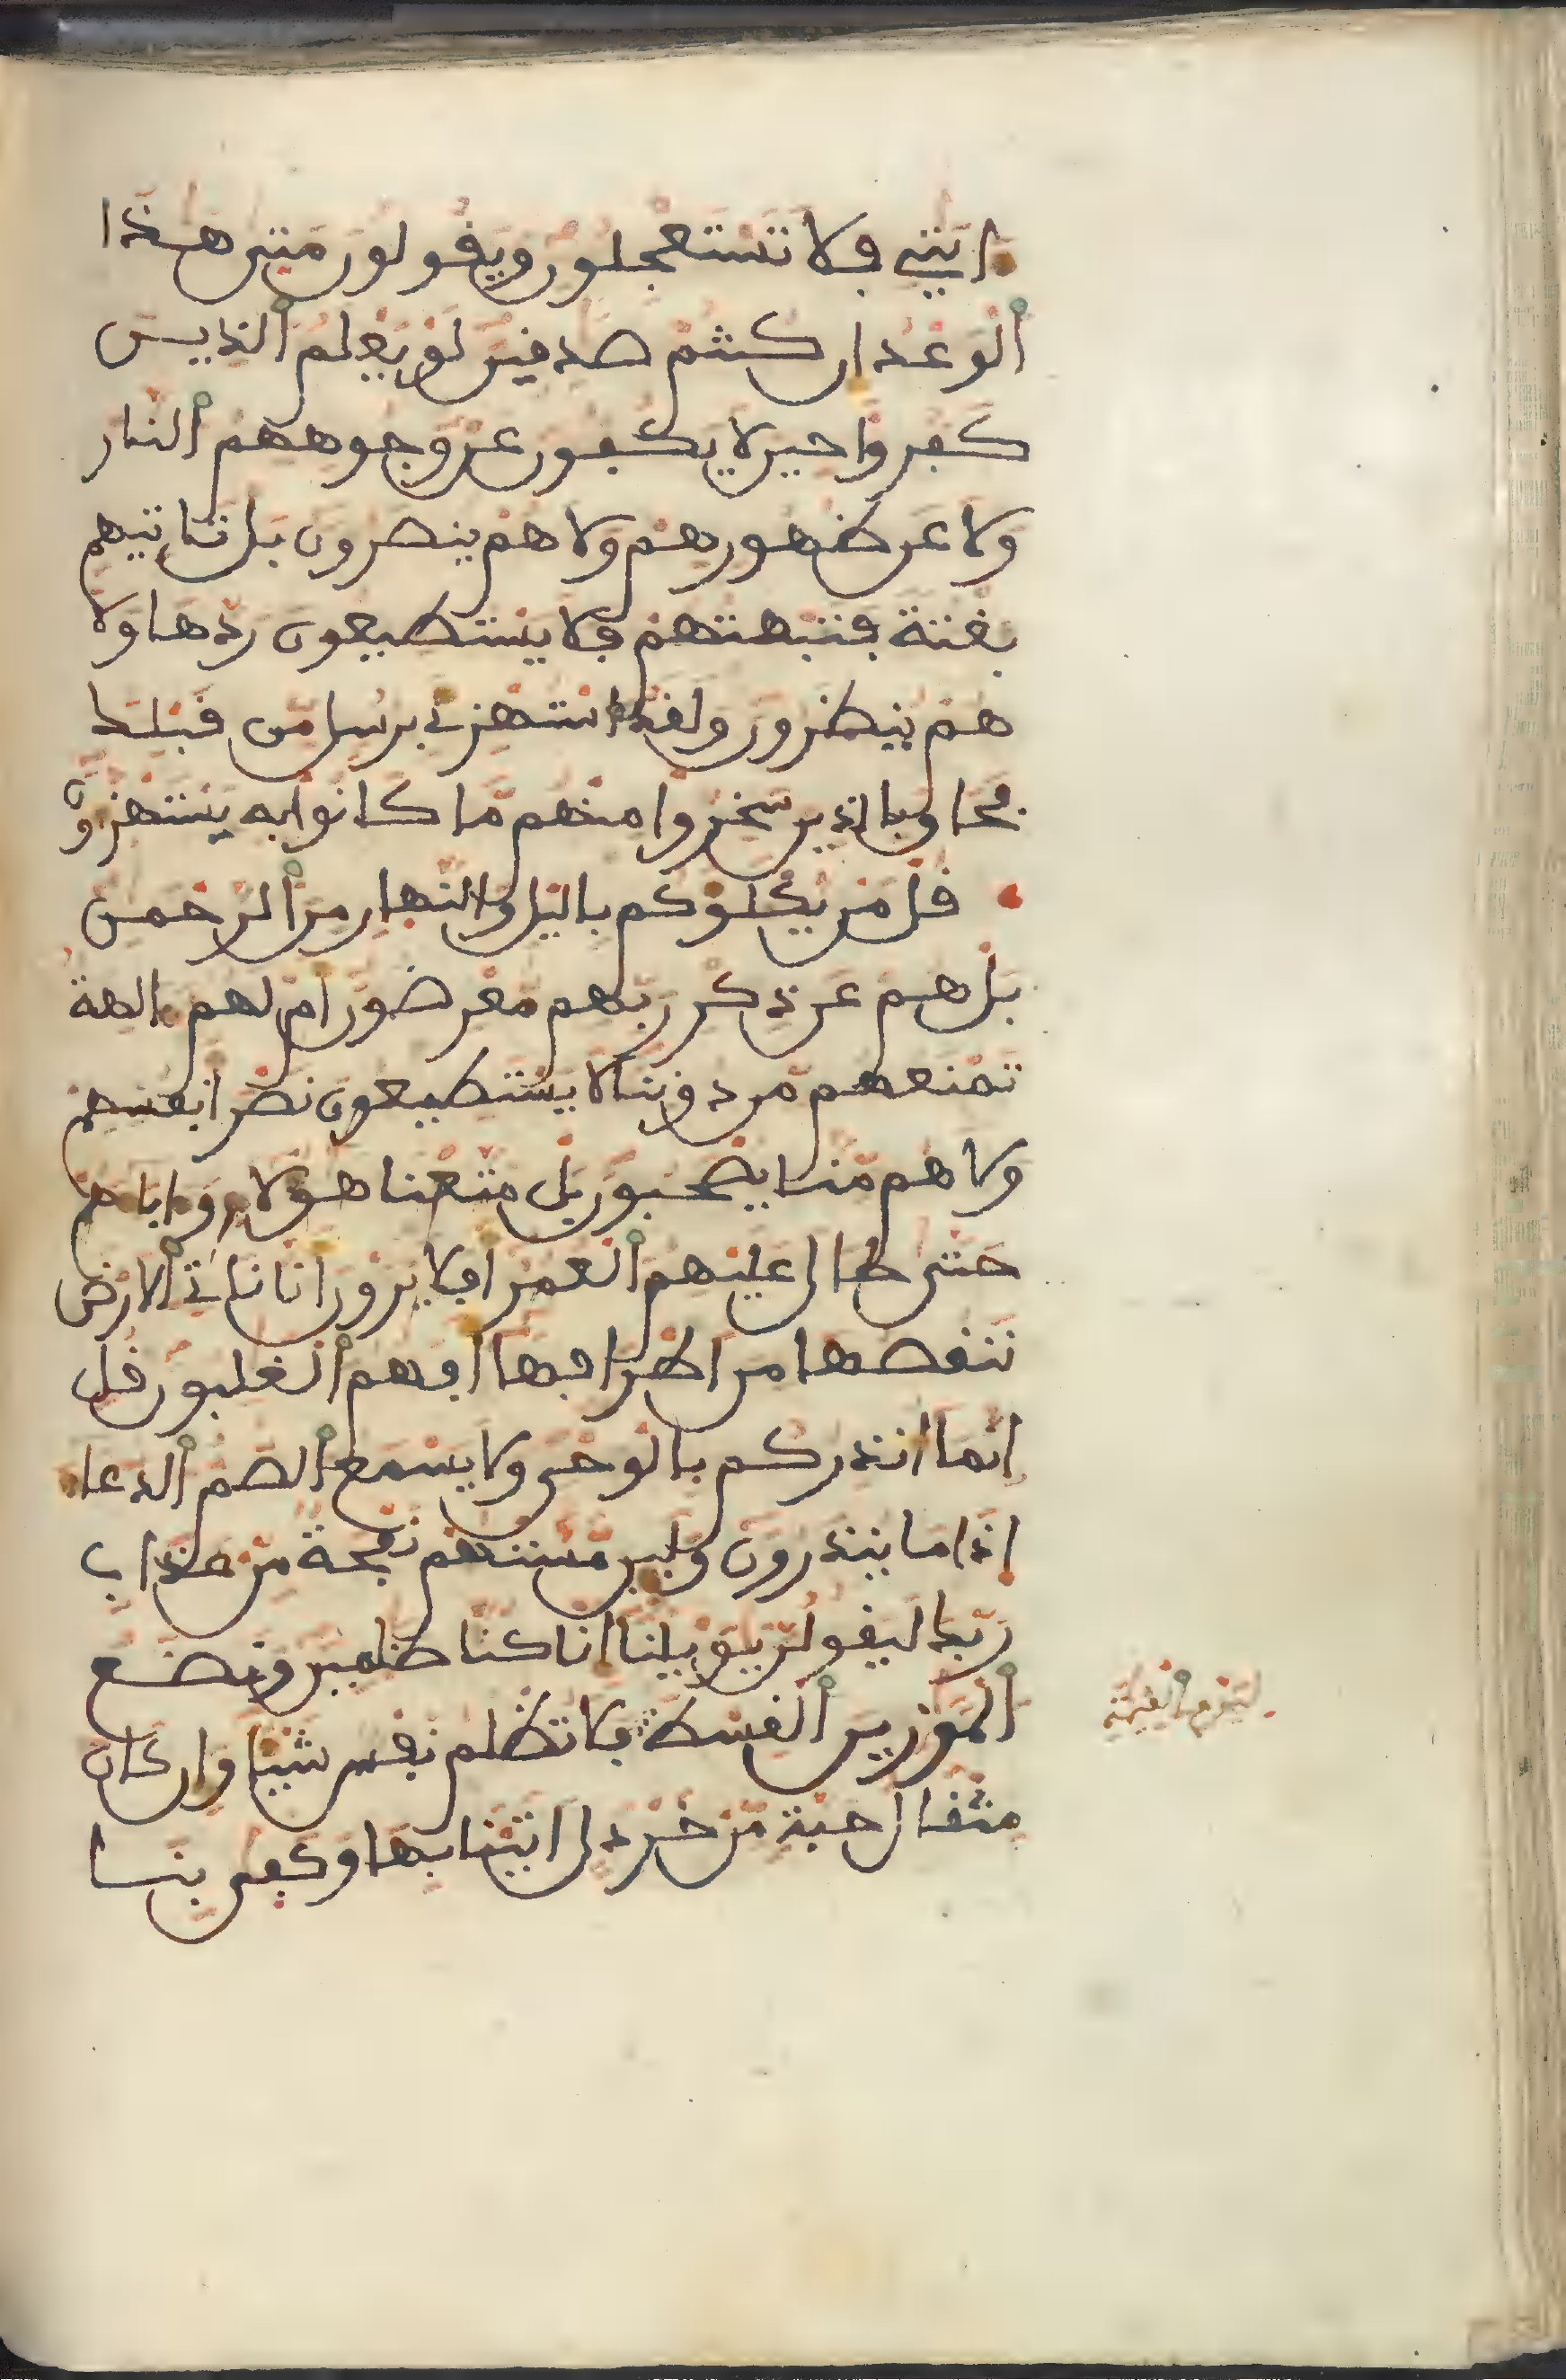 ايتے فلا تستعجلون ويقولون متى هذا
ٱلوعد ان كنتم صدقين لو يعلم ٱلذيں
كفروا حين لا يكفون عن وجوههم ٱلنار
ولا عن ظهورهم ولا هم ينصرون بل تاتيهم
بغتة فتبهتهم فلا يستطيعون ردها ولا
هم ينظرون ولقد استهزے برسل من قبلك
فحاق بالذين سخروا منهم ما كانوا به يستهزون
قل من يكلؤكم باليل والنهار من ٱلرحمن
بل هم عن ذكر ربهم معرضون ام لهم ءالهة
تمنعهم من دوننا لا يستطيعون نصر انفسهم
ولا هم منا يصحبون بل متعنا هؤلاء وءاباءهم
حتى طال عليهم ٱلعمر افلا يرون انا ناتے ٱلارض
ننقصها من اطرافها افهم ٱلغلبون قل
انما انذركم بالوحى ولا يسمع ٱلصم ٱلدعاء
اذا ما ينذرون ولين مستهم نفحة من عذاب
ربك ليقولن يويلنا انا كنا ظلمين ونضع
ٱلموزين ٱلقسط فلا تظلم نفس شيئا وان كان
مثقال حبة من خردل اتينا بها وكفى بنا
ليوم ٱلقيمة